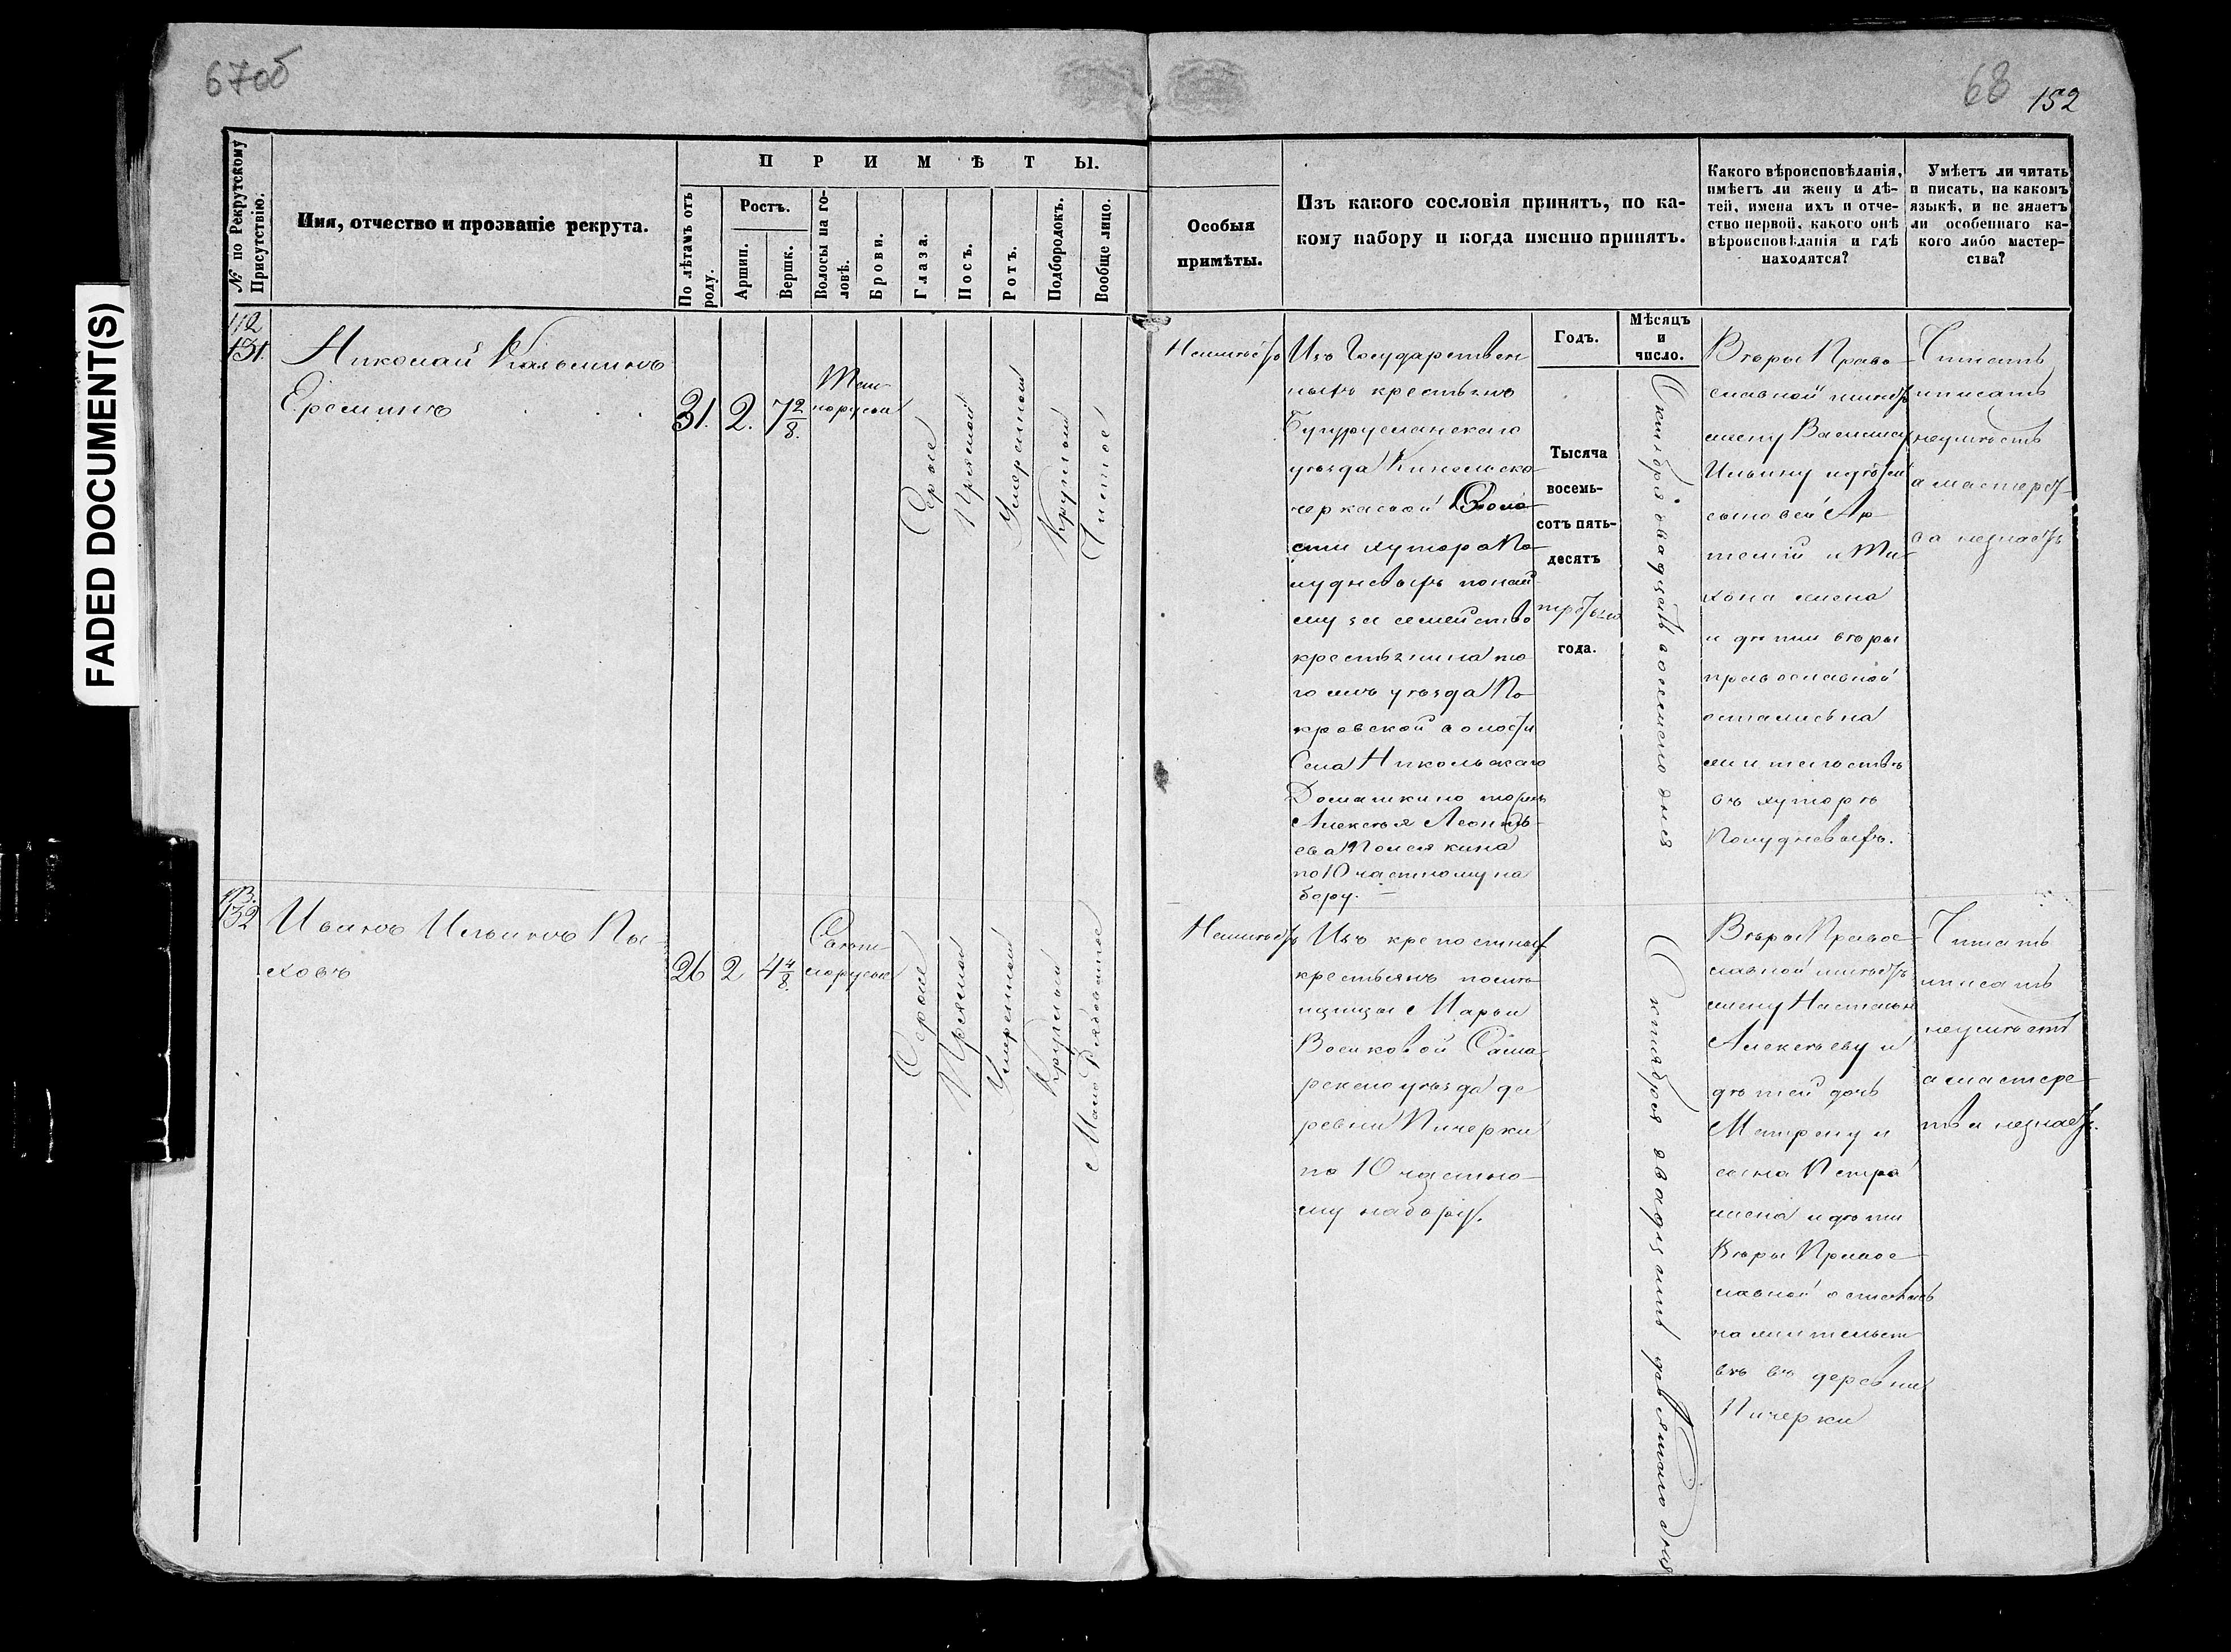 67об
68
152
FADED DOCUMENT(S)
№ по Рекрутскому
Присутствію.
Имя, отчество и прозваніе рекрута.
ПРИМѢТЫ.
По лѣтамъ отъ
роду.
Ростъ.
Аршин.
Вершк.
Волосы на го-
ловѣ.
Брови.
Глаза.
Носъ.
Ротъ.
Подбородокъ.
Вообще лицо.
Особыя
примѣты.
Изъ какого сословія принятъ, по ка-
кому набору и когда именно принятъ.
Какого вѣроисповѣданія,
имѣетъ ли жену и дѣ-
тей, имена ихъ и отче-
ство первой, какого онѣ
вѣроисповѣданія и гдѣ
находятся?
Умѣетъ ли читать
и писать, на какомъ
языкѣ, и не знаетъ
ли особеннаго ка-
кого либо мастер-
ства?
112
131.
Николай Козьминъ
Ереминъ
31.
2.
7 2/8.
Тем-
норусыя
Серые
Прямой
Умеренной
Круглой
Чистое
Неимѣетъ
Изъ Государствен
ныхъ крестьянъ
Бугурусланскаго
уѣзда Кинельско
черкаской Воло
сти хутора По
лудневыхъ понай
му за семейство
крестьянина то
гожъ уѣзда По
кровской волости
Села Никольскаго
Домашкино тожъ
Алексѣя Леонть-
ева
по 10 частному на
бору. —
Годъ.
Тысяча
восемь-
сотъ пять-
десятъ
третьяго
года.
Мѣсяцъ
и
число.
Октября двадцать осьмого дня
Вѣры Право
славной имѣетъ
жену Василису
Ильину и дѣтей
сыновей Ар
темій и Ти
хона жена
и дѣти вѣры
православной
остались на
жительствѣ
въ хуторѣ
Полудневыхъ.
Читать
и писать
неумѣетъ
а мастерст
ва незнаетъ
113.
132
Иванъ Ильинъ Па
ховъ
26
2
4 4/8.
Светло
русые
Серые
Прямой
Умеренной
Круглой
Мало Рябоватое
Неимѣетъ
Изъ крепостныхъ
крестьянъ помѣ
щицы Марьи
Воейковой Сама
рскаго уѣзда де
ревни Пичерки
по 10 частно
му набору.
Октября двадцать девятаго дня
Вѣры Правос
лавной имѣетъ
жену Настасью
Алексѣеву и
дѣтей дочь
Матрену и
сына Петра
жена и дѣти
Вѣры Правос
лавной остались
на жительст
вѣ въ деревни
Пичерки
Читать
и писать
неумѣетъ
а мастерс
тва незнаетъ.